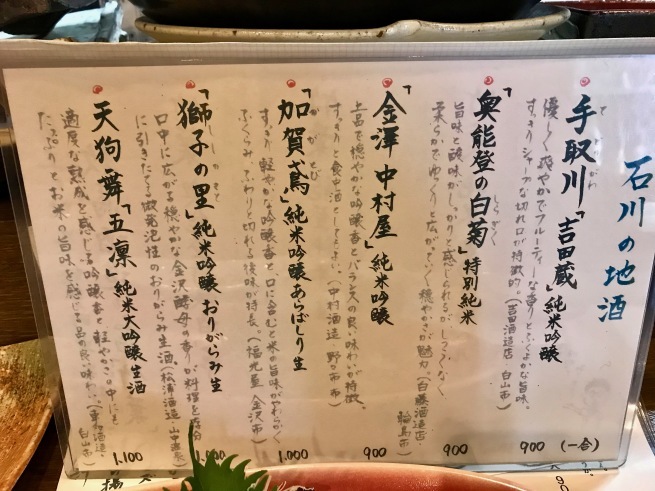 石川の地酒
手取川「吉田蔵」純米吟醸
てどりがわ
優しく爽やかでフルーティーな香りとふくよかな旨味。
すっきりシャープな切れ口が特徴的。(吉田酒造店 白山市)
900 (一合)
「奥能登の白菊」特別純米
しらぎく
旨味と酸味がしっかりと感じられるがしつこくなく
柔らかでゆっくりと広がっていく穏やかさが魅力。(白藤酒造店 輪島市)
900
「金澤中村屋」純米吟醸
上品で穏やかな吟醸香とバランスの良い味わが特徴。
すっきりと食中酒としてもよい。(中村酒造 野々市市)
900
「加賀鳶」純米吟醸あらばしり生
かがとび
すっきり軽やかな吟醸香と、口に含むと米の旨味がやわらかく
ふくらみ、ふわりと切れる後味が特長。(福光屋 金沢市)
1,000
「獅子の里」純米吟醸 おりがらみ生
ししのさと
口中に広がる穏やかな金沢酵母の香りが料理を
に引きたてる微発泡性のおりがらみ生酒(松浦酒造 山中温泉)
1,000
天狗舞「五凛」純米大吟醸生酒
適度な熟成を感じる吟醸香と軽やかさの中にも
たっぷりとお米の旨味を感じる品の良い味わい。(車多酒造 白山市)
1,100